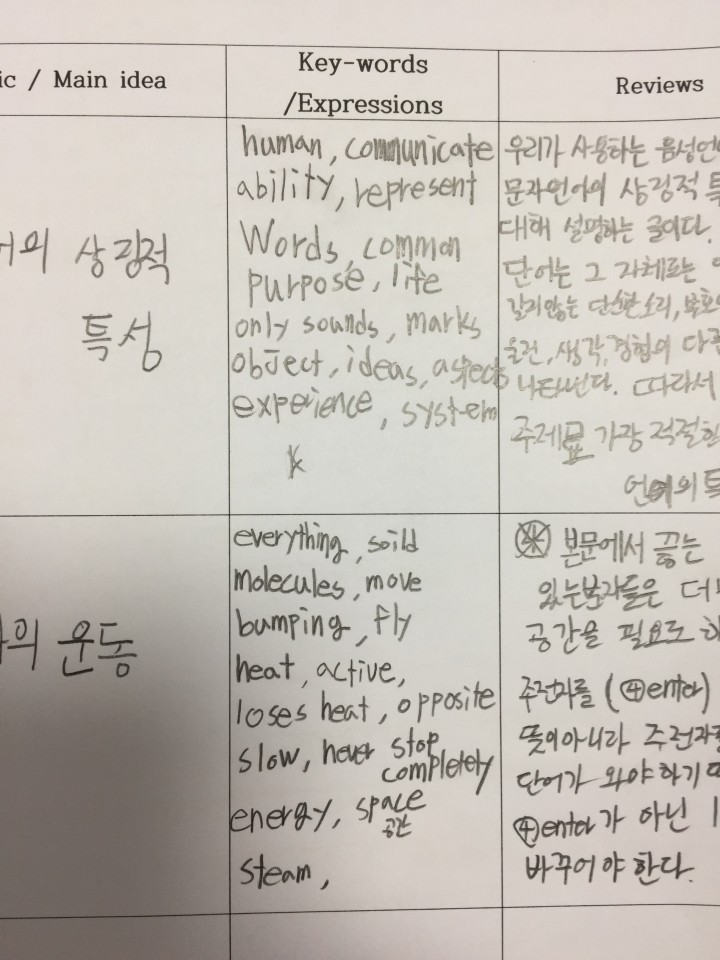 ic / Main idea
Key-words
/Expressions
Reviews
어의 상징적
특성
human, communicate
ability, represent
Words, common
purpose, life
only sounds, marks
object, ideas, aspects
experience, system
우리가 사용하는 음성언어
문자언어의 상징적 특
대해 설명하는 글이다.
단어는 그 자체로는
같지않는 단순한 소리,
물건, 생각, 경험의 다른
나타낸다. 따라서
주제로 가장 적절한
언어의 특
의 운동
everything, soild
molecules, move
bumping, fly
heat, active,
loses heat, opposite
slow, never stop
completely
energy, space
공간
steam,
④ 본문에서 끓는
있는 분자들은 더
공간을 필요로 하
주전자를 (④enter)
뜻이아니라 주전자
단어가 와야하기 때
④enter가 아닌 l
바꾸어야 한다.